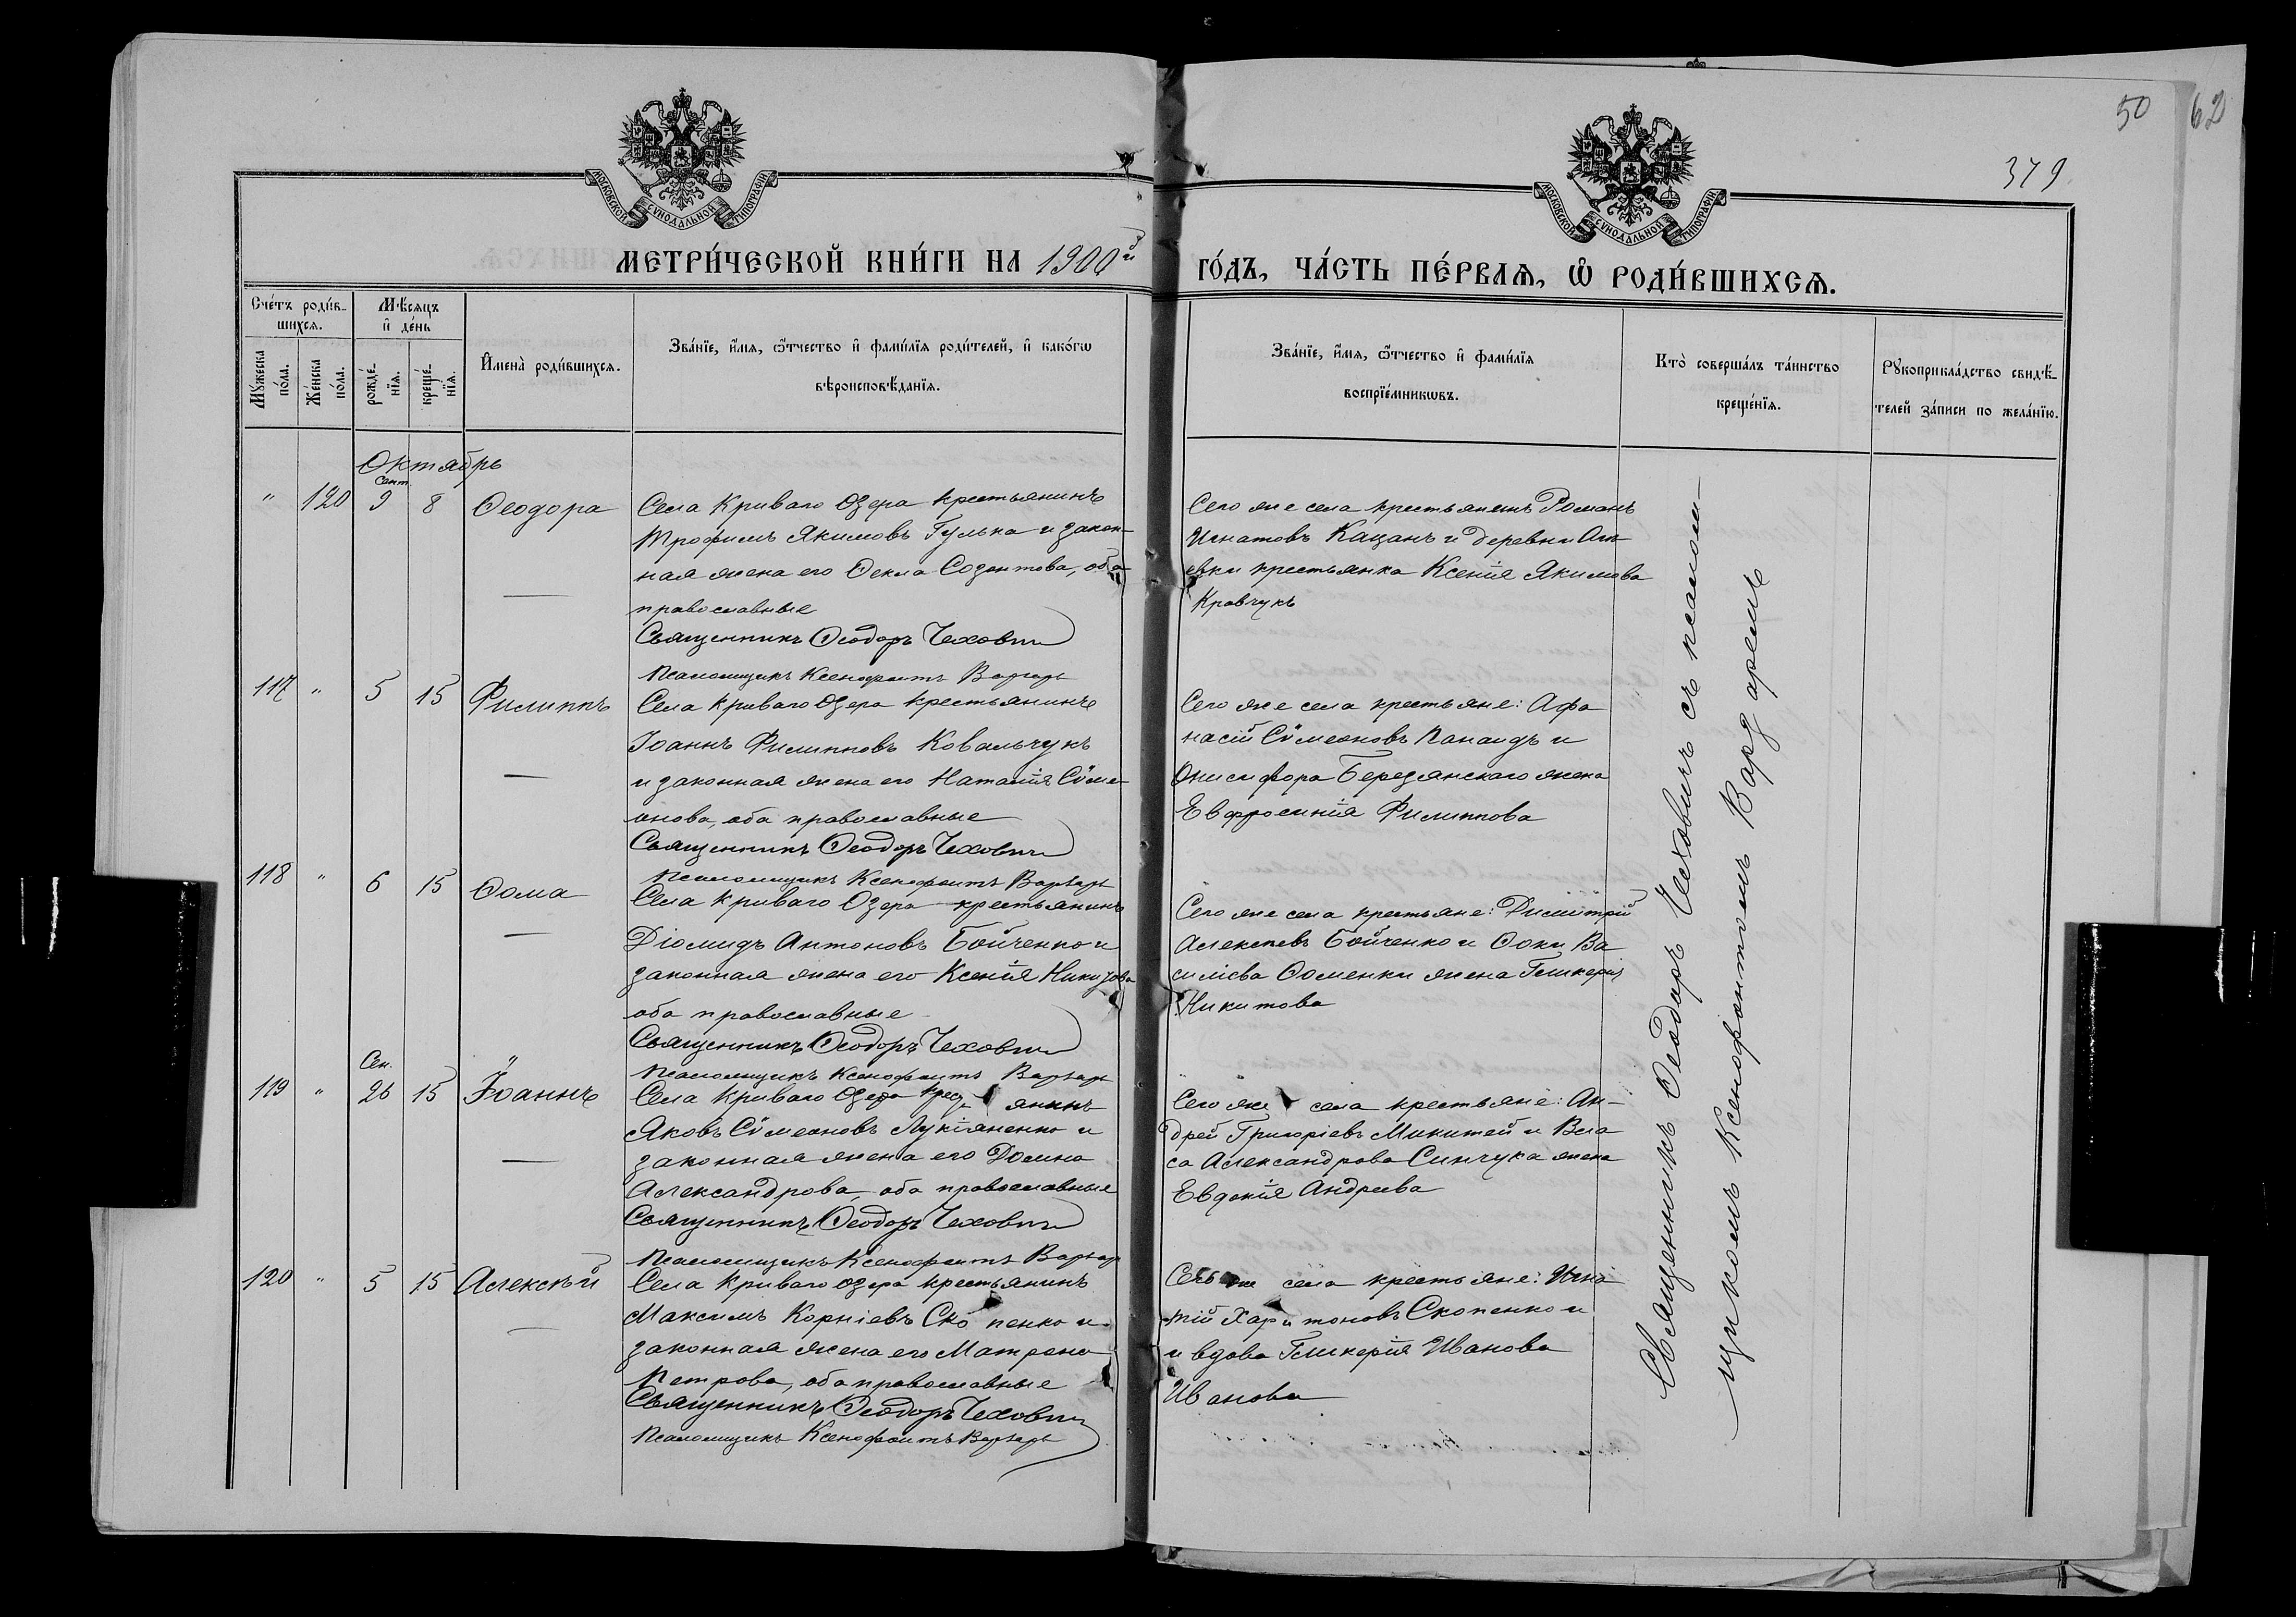 50
62
379
МОСКОВСКОЙ СУНОДАЛЬНОЙ ТИПОГРАФІИ
МОСКОВСКОЙ СУНОДАЛЬНОЙ ТИПОГРАФІИ
МЕТРИ́ЧЕСКОЙ КНИ́ГИ НА 1900й
ГО́ДЪ, ЧА́СТЬ ПЕ́РВАѦ, Ѡ҆ РОДИ́ВШИХСѦ.
Сче́тъ роди́в-
шихсѧ.
Мꙋ́жеска по́ла.
Же́нска по́ла.
Мѣ́сѧцъ
и҆ де́нь
рожде́-
нїѧ.
креще́-
нїѧ.
И҆мена̀ роди́вшихсѧ.
Зва́нїе, и҆́мѧ, ѻ҆́тчество и҆ фами́лїѧ роди́телей, и҆ како́гѡ
вѣроисповѣ́данїѧ.
Зва́нїе, и҆́мѧ, ѻ҆́тчество и҆ фами́лїѧ
воспрїе́мникѡвъ.
Кто̀ соверша́лъ та́инство
креще́нїѧ.
Рꙋкоприкла́дство свидѣ́-
телей за́писи по жела́нїю.
Октябрь
" 120 Сент. 9 8 Ѳеодора
Села Криваго Озера крестьянинъ
Трофимъ Якимовъ Гулька и закон-
ная жена его Ѳекла Созонтова, оба
православные
Священникъ Ѳеодоръ Чеховичъ
Псаломщикъ Ксенофонтъ Варзарь
Сего же села крестьянинъ Романъ
Игнатовъ Кацанъ и деревни
евки крестьянка Ксенія Якимова
Кравчукъ
117 " 5 15 Филиппъ
Села Криваго Озера крестьянинъ
Іоаннъ Филипповъ Ковальчукъ
и законная жена его Наталія Сѵме-
онова, оба православные
Священникъ Ѳеодоръ Чеховичъ
Псаломщикъ Ксенофонтъ Варзарь
Сего же села крестьяне: Афа
насій Сѵмеоновъ Папаидъ и
Онисифора Березянскаго жена
Евфросинія Филиппова
118 " 6 15 Ѳома
Села Криваго Озера крестьянинъ
Діомидъ Антоновъ Бойченко и
законная жена его Ксенія
оба православные
Священникъ Ѳеодоръ Чеховичъ
Псаломщикъ Ксенофонтъ Варзарь
Сего же села крестьяне: Димитрій
Алексѣевъ Бойченко и Ѳоки Ва
силіева Ѳоменки жена Гликерія
Никитова
119 " Сен. 26 15 Іоаннъ
Села Криваго Озера крест янинъ
Яковъ Сѵмеоновъ Лукіяненко и
законная жена его Домна
Александрова, оба православные
Священникъ Ѳеодоръ Чеховичъ
Псаломщикъ Ксенофонтъ Варзарь
Сего же села крестьяне: Ан-
дрей Григоріевъ Микитей и Вла
са Александрова Синчука жена
Евдокія Андреева
120 " 5 15 Алексѣй
Села Криваго Озера крестьянинъ
Максимъ Корніевъ Ско пенко и
законная жена его Матрона
Петрова, оба православные
Священникъ Ѳеодоръ Чеховичъ
Псаломщикъ Ксенофонтъ Варзарь
Сего же села крестьяне: Игна
тій Харитоновъ Скопенко и
и вдова Гликерія Иванова
Иванова
Священникъ Ѳеодоръ Чеховичъ съ псалом-
щикомъ Ксенофонтомъ Варзаремъ